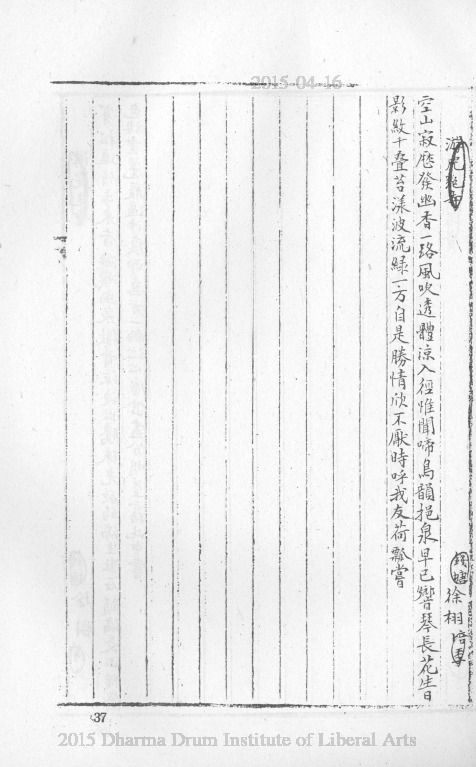 2015-04-16
徐栩
空山寂歷發幽香一路風吹透體涼入徑惟聞啼鳥韻挹泉早已響琴長花生日
影紋千疊苔漾波流綠一方自是勝情欣不厭時呼我友荷瓢嘗
37
2015 Dharma Drum Institute of Liberal Arts